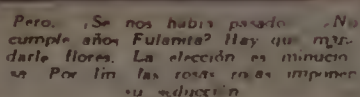 Pero. ¿Se nos había pasado. ¿No
cumple años Fulanita? Hay que man-
darle flores. La elección es minucio
sa Por fin las rosas rojas imponen
su seducción